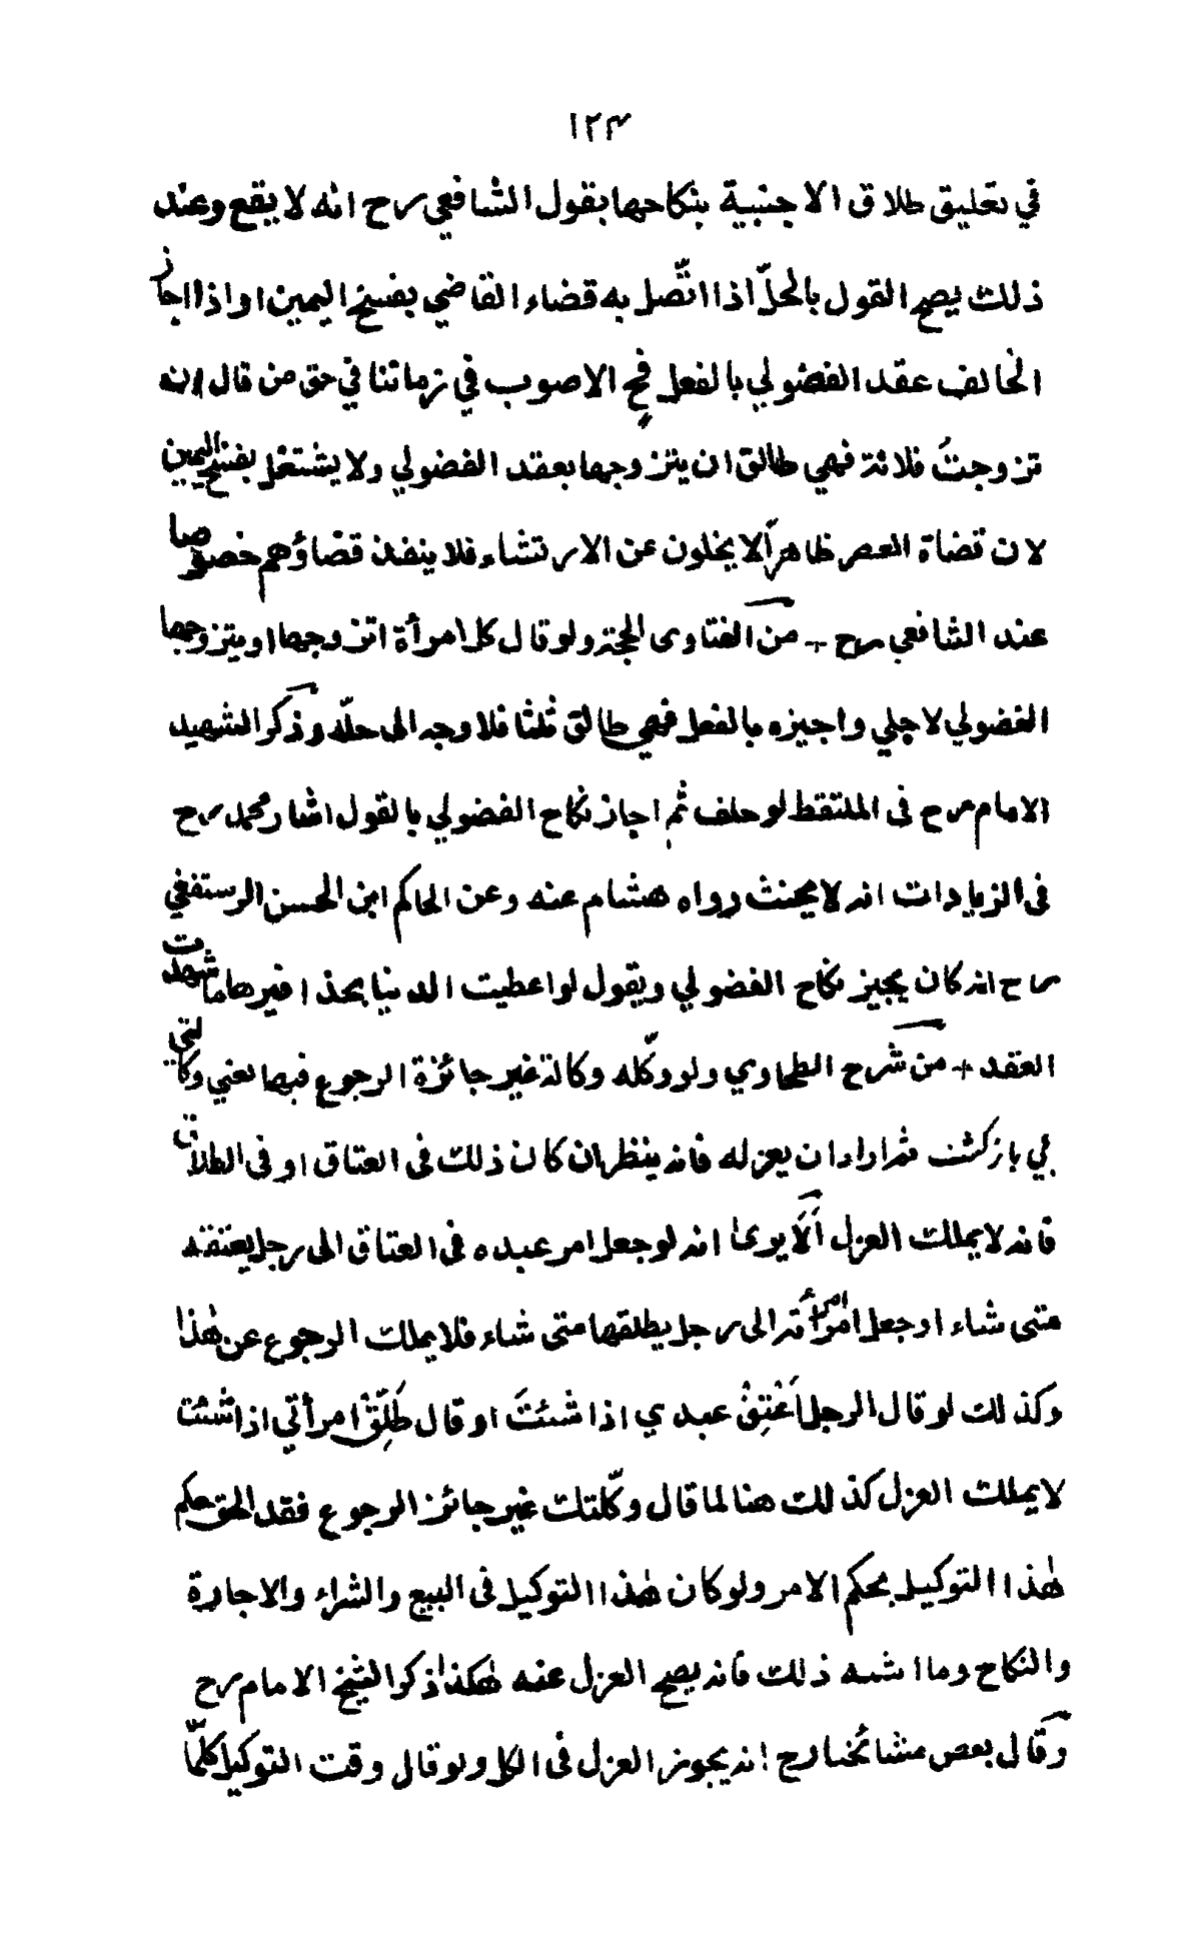 ١٢٣
في تعليق طلاق الاجنبية بنكاحها بقول الشافعي رح انه لا يقع وعند
ذلك يصح القول بالحلّ اذا اتّصل به قضاء القاضي بفسخ اليمين او اذا اجاز
الحالف عقد الفضولي بالفعل فح الاصوب في زماننا في حق من قال ان
تزوجتُ فلانة فهي طالق ان يتزوجها بعقد الفضولي ولا يشتغل بفسخ اليمين
لان قضاة العصر ظاهراً لا يخلون عن الارتشاء فلا ينفذ قضاؤهم خصوصا
عند الشافعي رح + من الفتاوى الحجة ولو قال كل امرأة اتزوجها او يتزوجها
الفضولي لاجلي واجيزه بالفعل فهي طالق ثلثا فلا وجه الى حلّه وذكر الشهيد
الامام رح فى الملتقط لو حلف ثم اجاز نكاح الفضولي بالقول اشار محمد رح
فى الزيادات انه لا يحنث رواه هشام عنه وعن الحاكم ابن الحسن الرستفغي
رح انه كان يجيز نكاح الفضولي ويقول لو اعطيت الدنيا بحذافيرها ما شهدت
العقد + من شرح الطحاوي ولو وكّله وكالة غير جائزة الرجوع فيها يعني وكالتي
بي بازكشت ثم اراد ان يعزله فانه ينظر ان كان ذلك فى العتاق او فى الطلاق
فانه لا يملك العزل اَلَا يرى انه لو جعل امر عبده فى العتاق الى رجل يعتقه
متى شاء او جعل امر امرأته الى رجل يطلقها متى شاء فلا يملك الرجوع عن هٰذا
وكذلك لو قال الرجل اَعْتِقْ عبدي اذا شئتَ او قال طَلِّقْ امرأتي اذا شئت
لا يملك العزل كذلك هنا لما قال وكّلتك غير جائز الرجوع فقد الحق حكم
هٰذا التوكيل بحكم الامر ولو كان هٰذا التوكيل فى البيع والشراء والاجارة
والنكاح وما اشبه ذلك فانه يصح العزل عنه هٰكذا ذكر الشيخ الامام رح
وقال بعض مشائخنا رح انه يجوز العزل فى الكل ولو قال وقت التوكيل كلّما